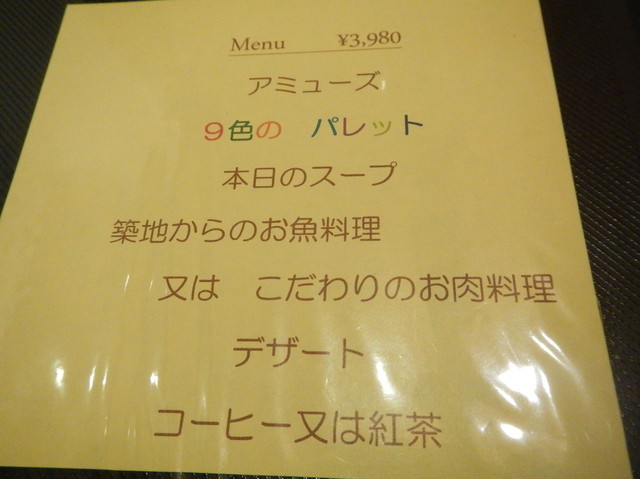 Menu ¥3,980
アミューズ
9色の パレット
本日のスープ
築地からのお魚料理
又は こだわりのお肉料理
デザート
コーヒー又は紅茶